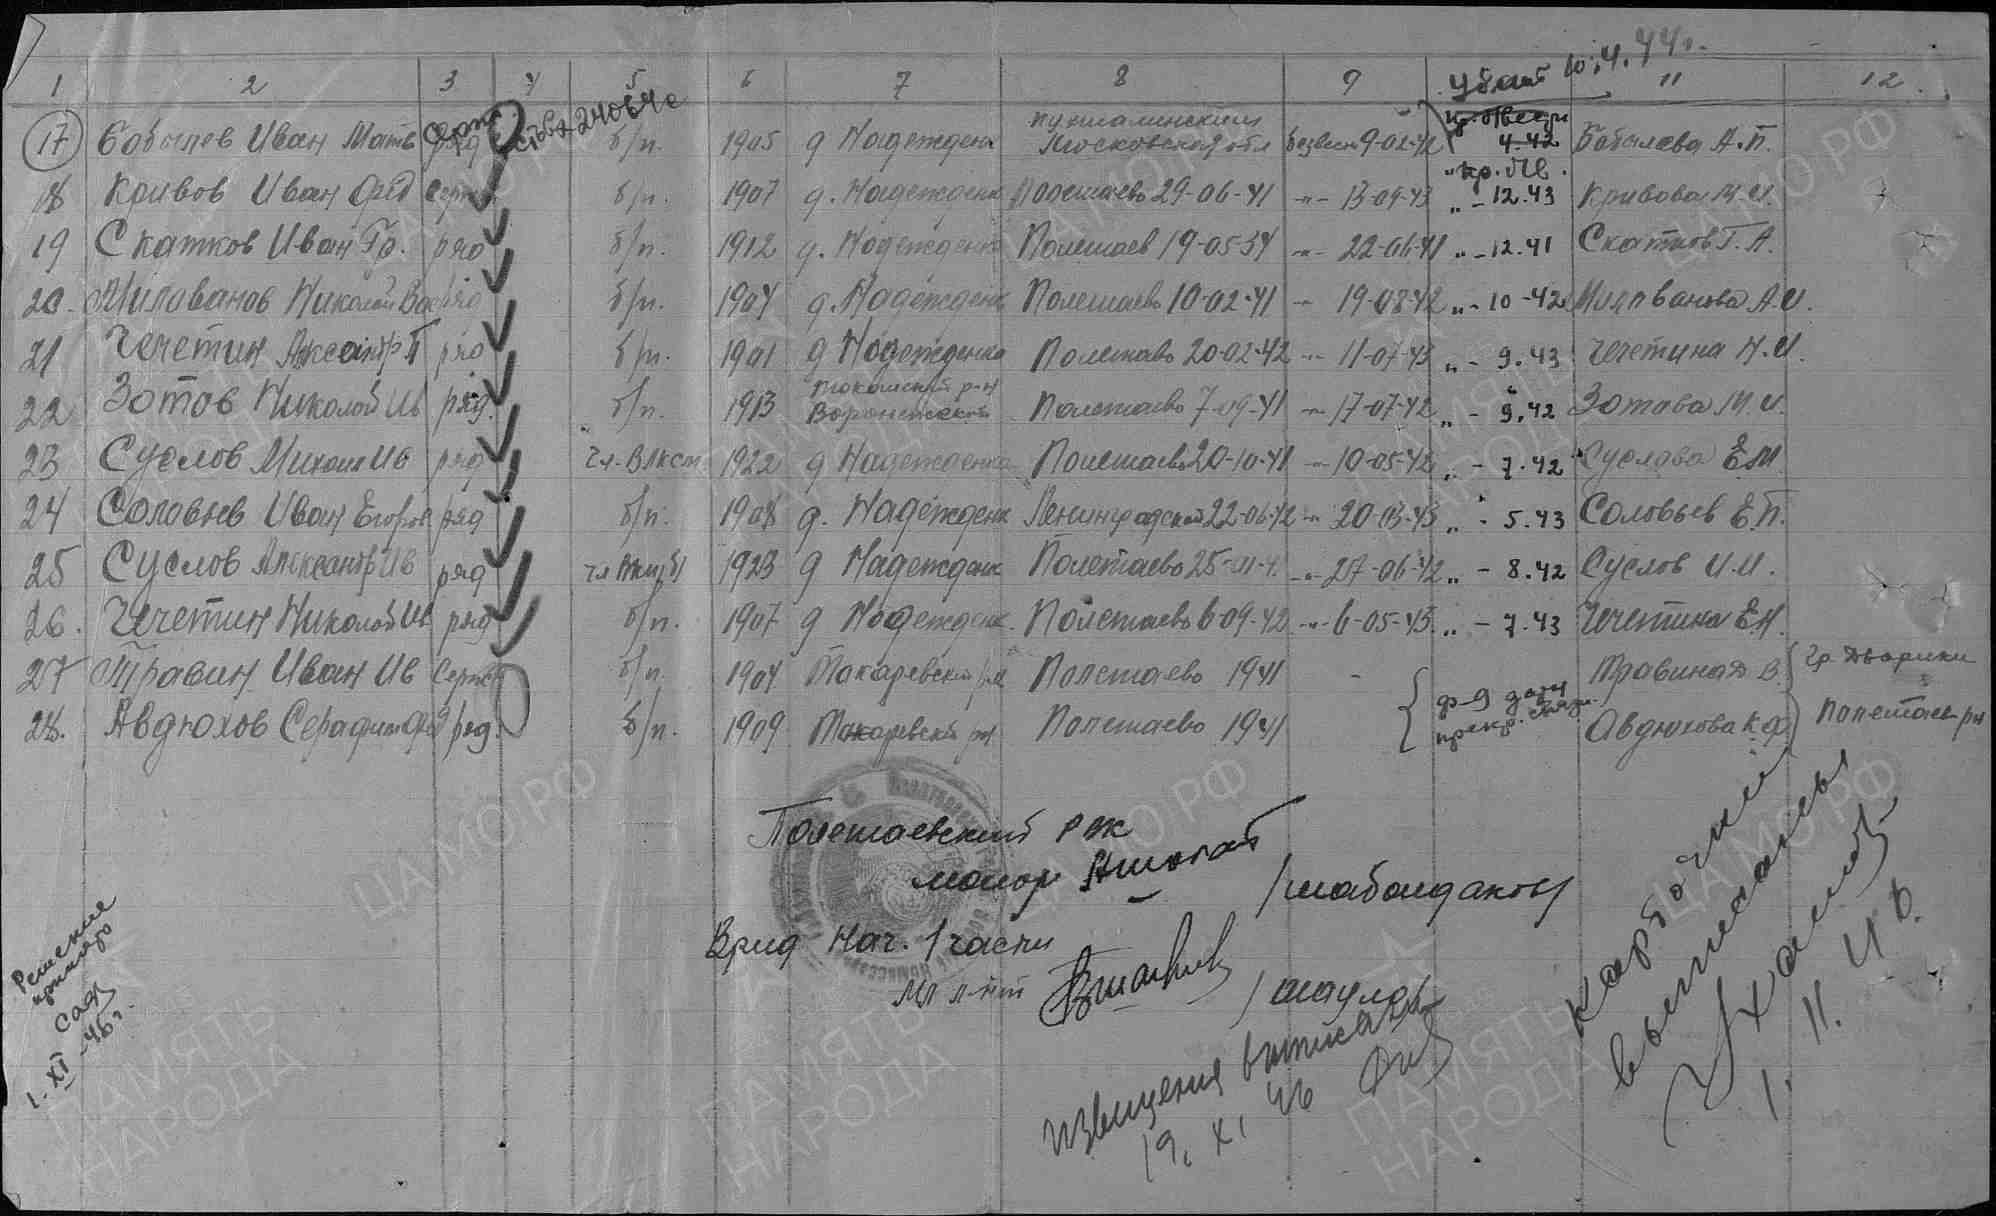 10.4.44г.
1 2 3 4 5 6 7 8 9 Убит 11 12
17 Бобылев Иван Матв ряд б/п. 1905 д Надежденк Московская обл безвести 9-02-42 4.42 Бобылева А.П.
пр. б/вести
18 Кривов Иван Фед Серж б/п. 1907 д. Надежденк Полетаево 29-06-41 -"- 13-09-43 " - 12.43 Кривова М.И.
19 Скатков Иван Гр. ряд б/п. 1912 д. Надежденк Полетаев 19-05-34 -"- 22-06-41 " - 12.41 Скатков Г.А.
20. Милованов Николай Вас ряд б/п. 1904 д. Надежденк Полетаево 10-02-41 -"- 19-08-42 " - 10-42 Милованова А.И.
21 Чечетин Алксандр П ряд б/п. 1901 д Надежденка Полетаево 20-02-42 -"- 11-07-43 " - 9.43 Чечетина Н.И.
22 Зотов Николай Ив ряд. б/п. 1913 Токайский р-н Воронежской Полетаево 7-09-41 -"- 17-07-42 " - 9.42 Зотова М.И.
23 Суслов Михаил Ив ряд чл. ВЛКСМ 1922 д Надежденка Полетаево 20-10-41 -"- 10-05-42 " - 7.42 Суслова Е.М
24 Соловьев Иван Егоров ряд б/п. 1908 д. Надежденк Ленинградской 22-06-42 -"- 20-03-43 " - 5.43 Соловьев Е.П.
25 Суслов Александр Ив ряд 1923 д Надежденк Полетаево 25-01-4. -"- 27-06-42 " - 8.42 Суслов И.И.
26. Чечетин Николай Ив ряд б/п. 1907 д Надежденк. Полетаево 6-09-42 -"- 6-05-43. " - 7.43 Чечетина Е.Н.
27 Травин Иван Ив Серж б/п. 1904 Токаревский р-н Полетаево 1941 - Травина В. Гр. Дворики
28. Авдюхов Серафим Фед ряд. б/п. 1909 Токаревский рн Полетаево 1941 Авдюхова К.Ф. Полетаев рн
прекр. связи.
Полетаевский РВК
майор
/Шабалдаков/
Врид Нач. 1 части
Мл л-нт
Решение принято
1. XI - 46г.
Извещения выписаны
19. XI. 46
Карточки
выписаны
1. 11. 46.
ЦАМО.РФ
ПАМЯТЬ
НАРОДА